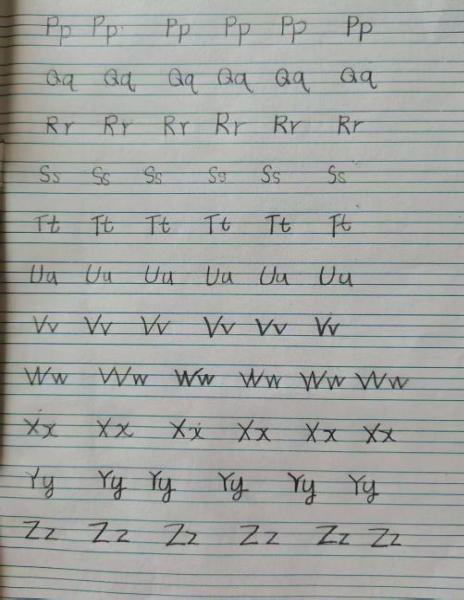 Pp Pp Pp Pp Pp Pp
Qq Qq Qq Qq Qq Qq
Rr Rr Rr Rr Rr Rr
Ss Ss Ss Ss Ss Ss
Tt Tt Tt Tt Tt Tt
Uu Uu Uu Uu Uu Uu
Vv Vv Vv Vv Vv Vv
Ww Ww Ww Ww Ww Ww
Xx Xx Xx Xx Xx Xx
Yy Yy Yy Yy Yy Yy
Zz Zz Zz Zz Zz Zz